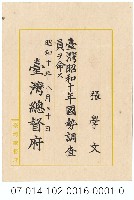 張學文
臺灣昭和十年國勢調查
員ヲ命ス
昭和十年八月十日
臺灣總督府
07 014 102 0016 0001 0